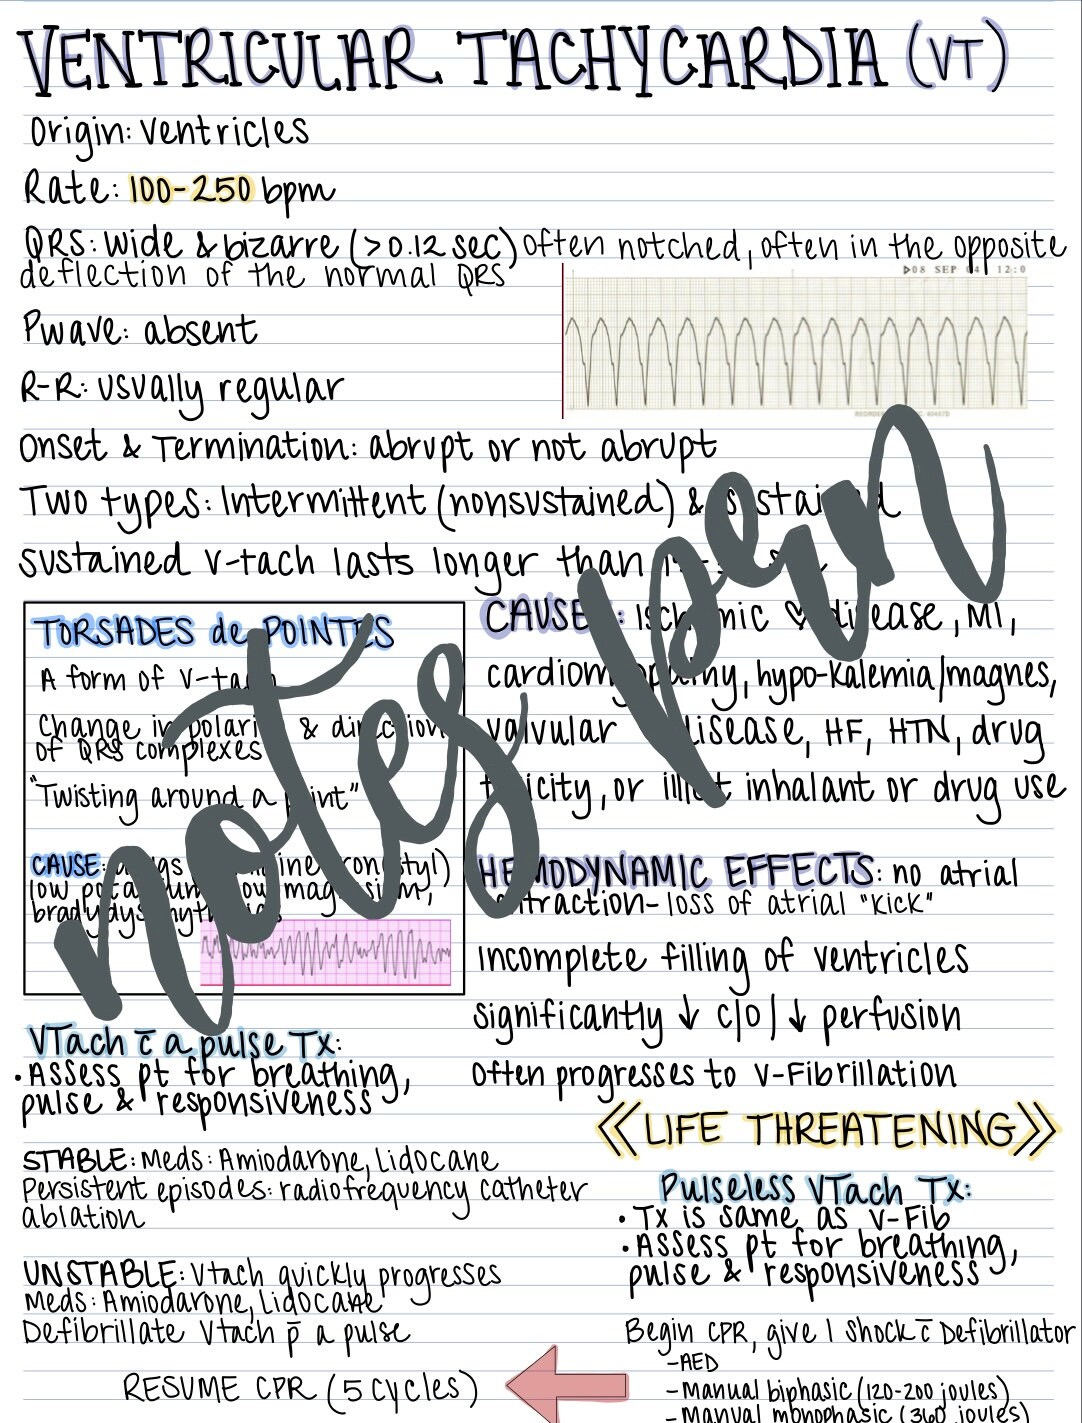 VENTRICULAR TACHYCARDIA (VT)
Origin: Ventricles
Rate: 100-250 bpm
QRS: Wide & bizarre (>0.12 sec) often notched, often in the opposite
deflection of the normal QRS
▷08 SEP 04 12:0
Pwave: absent
R-R: usually regular
Onset & Termination: abrupt or not abrupt
Two types: Intermittent (nonsustained) & sustained
sustained v-tach lasts longer than
notes pen
TORSADES de POINTES
A form of v-tach
Change in polarity & direction
of QRS complexes
"Twisting around a point"
CAUSE: drugs
low potassium, low magnesium,
bradydysrhythmias
CAUSES: Ischemic ♡ disease, MI,
cardiomyopathy, hypo-kalemia/magnes,
valvular disease, HF, HTN, drug
toxicity, or illicit inhalant or drug use
HEMODYNAMIC EFFECTS: no atrial
contraction- loss of atrial "kick"
Incomplete filling of ventricles
significantly ↓ c/o / ↓ perfusion
Often progresses to v-Fibrillation
《LIFE THREATENING》
VTach c̄ a pulse Tx:
• Assess pt for breathing,
pulse & responsiveness
STABLE: Meds: Amiodarone, Lidocane
Persistent episodes: radiofrequency catheter
ablation
UNSTABLE: Vtach quickly progresses
Meds: Amiodarone, Lidocane
Defibrillate Vtach p̄ a pulse
RESUME CPR (5 cycles)
Pulseless VTach Tx:
• Tx is same as v-Fib
• Assess pt for breathing,
pulse & responsiveness
Begin CPR, give 1 shock c̄ Defibrillator
-AED
-Manual biphasic (120-200 joules)
-Manual monophasic (360 joules)